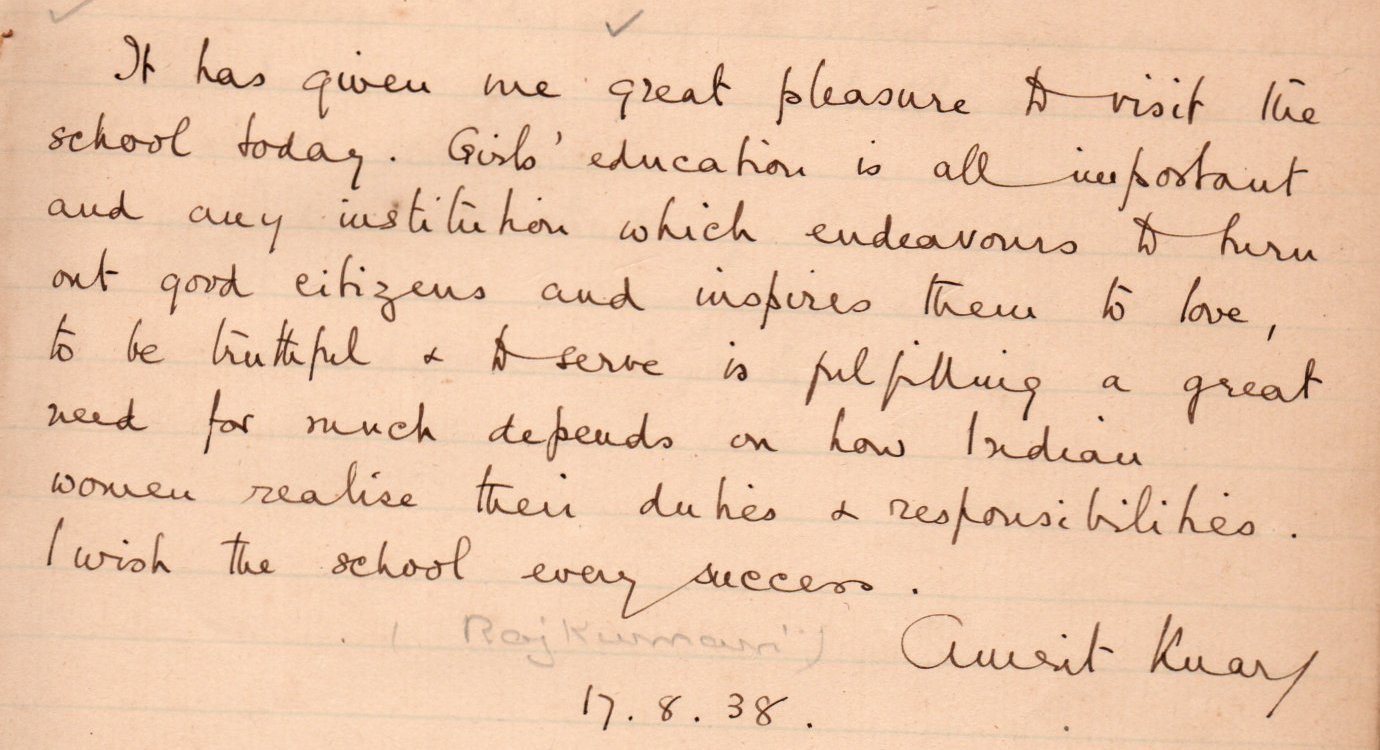 It has given me great pleasure to visit the
school today. Girls' education is all important
and any institution which endeavours to turn
out good citizens and inspires them to love,
to be truthful & to serve is fulfilling a great
need for much depends on how Indian
women realise their duties & responsibilities.
I wish the school every success.
( Rajkumari )
Amrit Kuar
17.8.38.